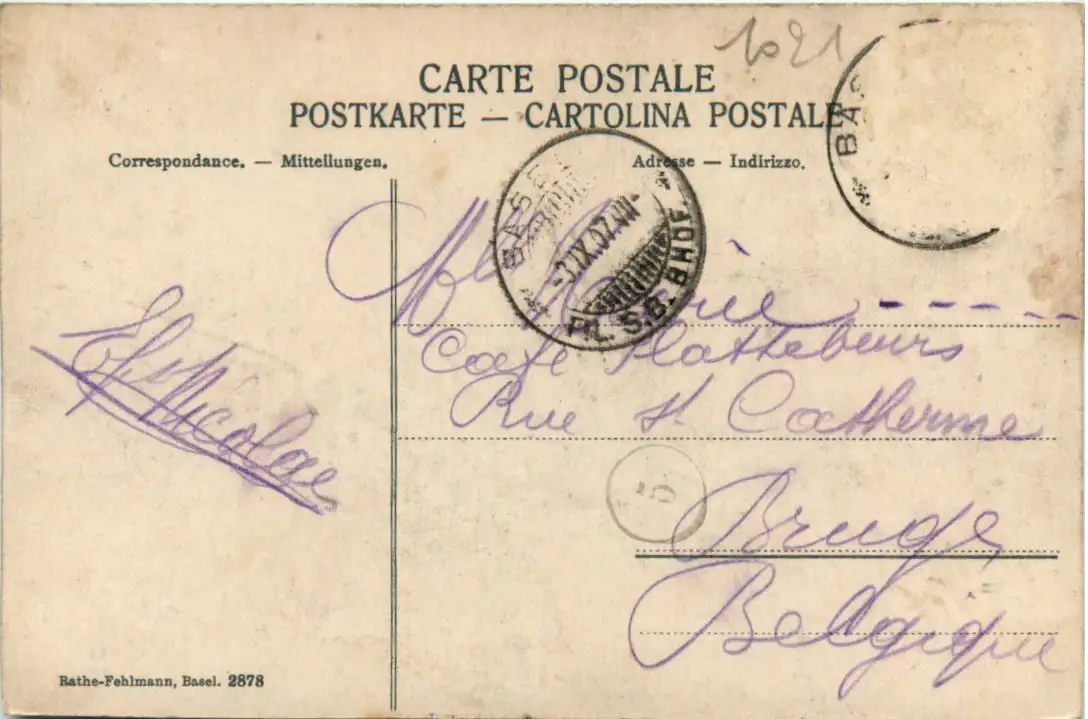 1021
CARTE POSTALE
POSTKARTE — CARTOLINA POSTALE
Correspondance. — Mitteilungen.
Adresse — Indirizzo.
BASEL
-3.IX.07.VII-
FIL. S.B. BHOF.
BAS
Mlle Marie
Café Plattebeurs
Rue St Catherine
5
Bruges
Belgique
Nicolas
Rathe-Fehlmann, Basel. 2878